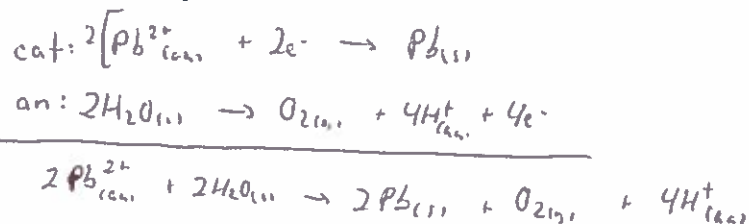 cat: 2[Pb²⁺(aq) + 2e- → Pb(s)
an: 2H₂O(l) → O₂(g) + 4H⁺(aq) + 4e-
2Pb²⁺(aq) + 2H₂O(l) → 2Pb(s) + O₂(g) + 4H⁺(aq)